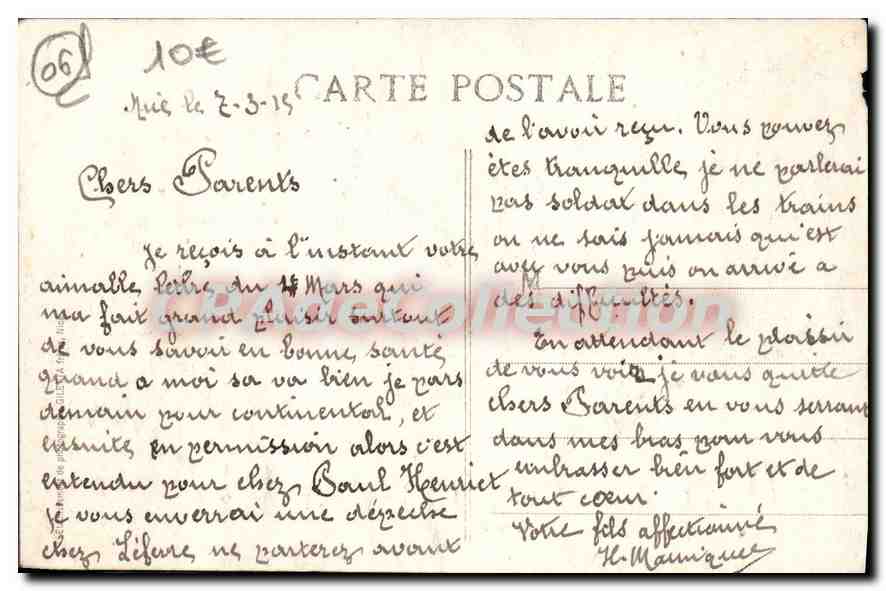 06
10€
CARTE POSTALE
Nice le 7-3-15
Chers Parents
Je reçois à l'instant votre
aimable lettre du 4 Mars qui
ma fait grand plaisir surtout
de vous savoir en bonne santé
quand a moi sa va bien je pars
demain pour continental, et
ensuite en permission alors c'est
entendu pour chez Paul Henriet
je vous enverrai une dépeche
chez Léfevre ne parterez avant
de l'avoir reçu. Vous pouvez
êtes tranquille, je ne parlerai
pas soldat dans les trains
on ne sais jamais qu'est
avec vous puis on arrivé a
des difficultés.
En attendant le plaisir
de vous voir je vous quitte
chers Parents en vous serrant
dans mes bras pour vous
embrasser bien fort et de
tout cœur.
Votre fils affectionné
CPAdeCollection